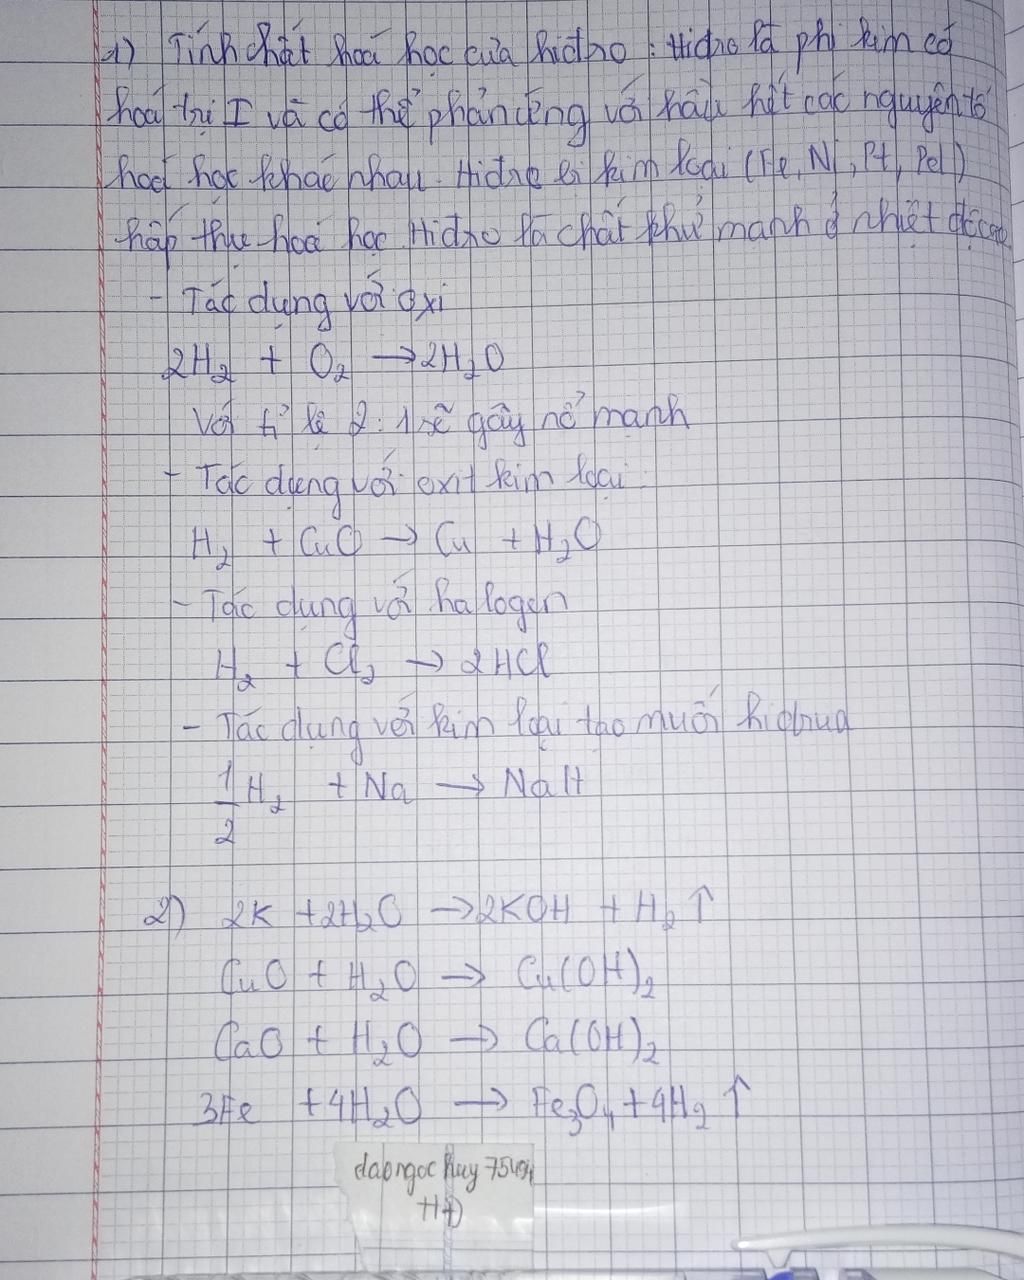 1) Tính chất hoá học của hiđro : Hiđro là phi kim có
hoá trị I và có thể phản ứng với hầu hết các nguyên tố
hoá học khác nhau. Hiđro bị kim loại (Fe, Ni, Pt, Pd)
hấp thụ hoá học. Hiđro là chất khử mạnh ở nhiệt độ cao
- Tác dụng với oxi
2H₂ + O₂ → 2H₂O
Với tỉ lệ 2:1 sẽ gây nổ mạnh
- Tác dụng với oxit kim loại
H₂ + CuO → Cu + H₂O
- Tác dụng với halogen
H₂ + Cl₂ → 2HCl
- Tác dụng với kim loại tạo muối hiđrua
1/2 H₂ + Na → NaH
2) 2K + 2H₂O → 2KOH + H₂ ↑
CuO + H₂O → Cu(OH)₂
CaO + H₂O → Ca(OH)₂
3Fe + 4H₂O → Fe₃O₄ + 4H₂ ↑
daongoc huy